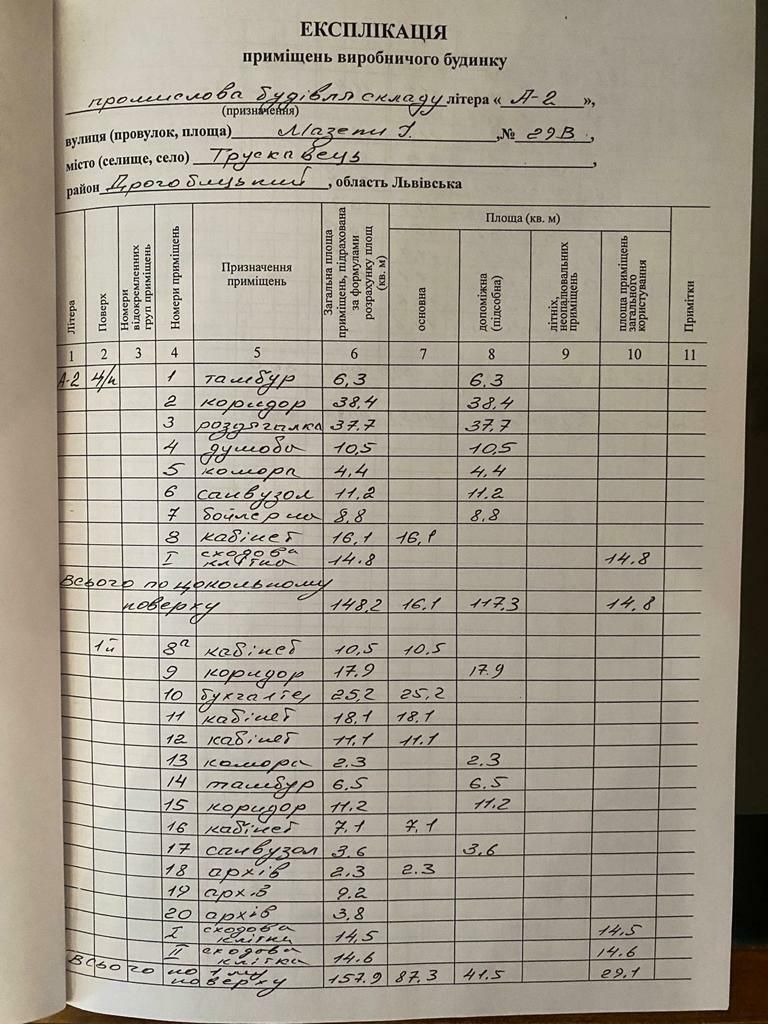 ЕКСПЛІКАЦІЯ
приміщень виробничого будинку
промислова будівля складу літера « А-2 »,
(призначення)
вулиця (провулок, площа) Мазепи І. ,№ 29В ,
місто (селище, село) Трускавець ,
район Дрогобицький , область Львівська
Літера Поверх Номери відокремленних груп приміщень Номери приміщень Призначення приміщень Загальна площа приміщень, підрахована за формулами розрахунку площ (кв. м) Площа (кв. м) основна допоміжна (підсобна) літніх, неопалювальних приміщень площа приміщень загального користування Примітки
1 2 3 4 5 6 7 8 9 10 11
А-2 ц/п 1 тамбур 6,3 6.3
2 коридор 38.4 38.4
3 роздягалка 37.7 37,7
4 душова 10,5 10,5
5 комора 4.4 4.4
6 санвузол 11.2 11.2
7 бойлерна 8,8 8,8
8 кабінет 16,1 16,1
I сходова клітка 14.8 14.8
Всього по цокольному
поверху 148,2 16.1 117.3 14,8
1й 8а кабінет 10,5 10,5
9 коридор 17.9 17.9
10 бухгалтер 25,2 25,2
11 кабінет 18,1 18,1
12 кабінет 11.1 11.1
13 комора 2.3 2.3
14 тамбур 6.5 6.5
15 коридор 11.2 11.2
16 кабінет 7,1 7,1
17 санвузол 3,6 3,6
18 архів 2.3 2.3
19 архів 9.2
20 архів 3,8
I сходова клітка 14,5 14.5
II сходова клітка 14.6 14.6
Всього по 1 му поверху 157.9 87.3 41.5 29.1